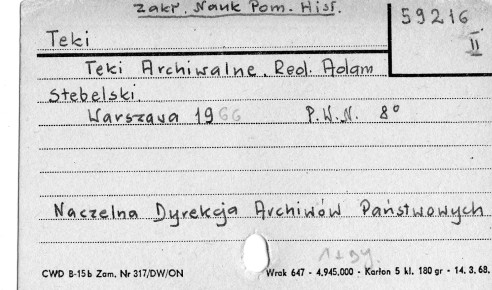 Zakr. Nauk Pom. Hist.
59216
II
Teki
Teki Archiwalne. Red. Adam
Stebelski.
Warszawa 1966 P.W.N. 8°
Naczelna Dyrekcja Archiwów Państwowych
CWD B-15b Zam. Nr 317/DW/ON
Wrak 647 - 4.945.000 - Karton 5 kl. 180 gr - 14. 3. 68.